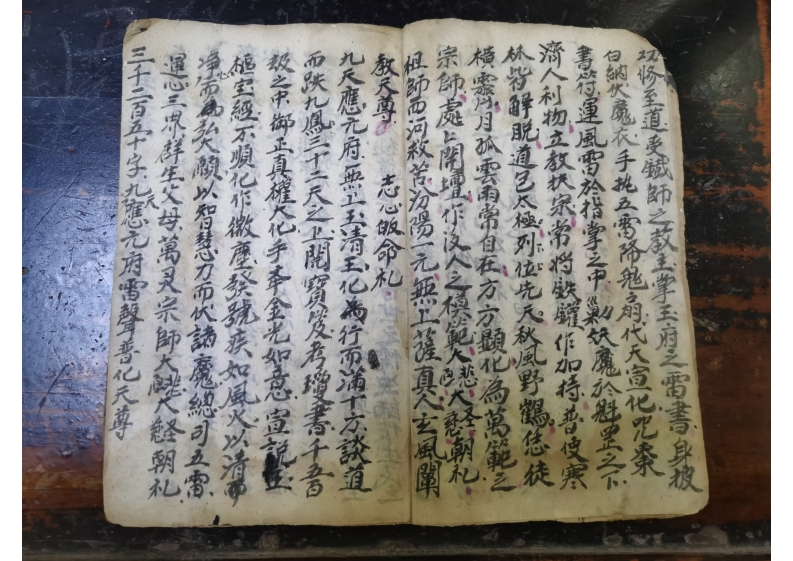 功修至道受鐵師之蔭主掌玉府之雷書身披
白納伏魔衣手執五雷降鬼扇代天宣化咒棗
書符運風雷於指掌之中剿妖魔於魁罡之下
濟人利物立教扶宗常將鉄鑵作加持普使寒
林皆解脱道包太極列位先天秋風野鶴恁徒
橫靈月孤雲雨常自在方方顯化為萬範之
宗師處處開壇作後人之模範大悲大聖大慈朝礼
祖師西河救苦汾陽一元無上薩真人玄風闡
教天尊 志心皈命礼
九天應元府無上玉清王化為行而滿十方談道
而趺九鳳三十二天之上閱寶笈考瓊書千五百
刼之中御正真權大化手奉金光如意宣說玉
樞宝經不順化作微塵發號疾如風火以清淨心
而為弘大願以智慧力而伏諸魔總司五雷
運心三界群生父母萬灵宗師大悲大慈朝礼
三千二百五十字九天應元府雷聲普化天尊